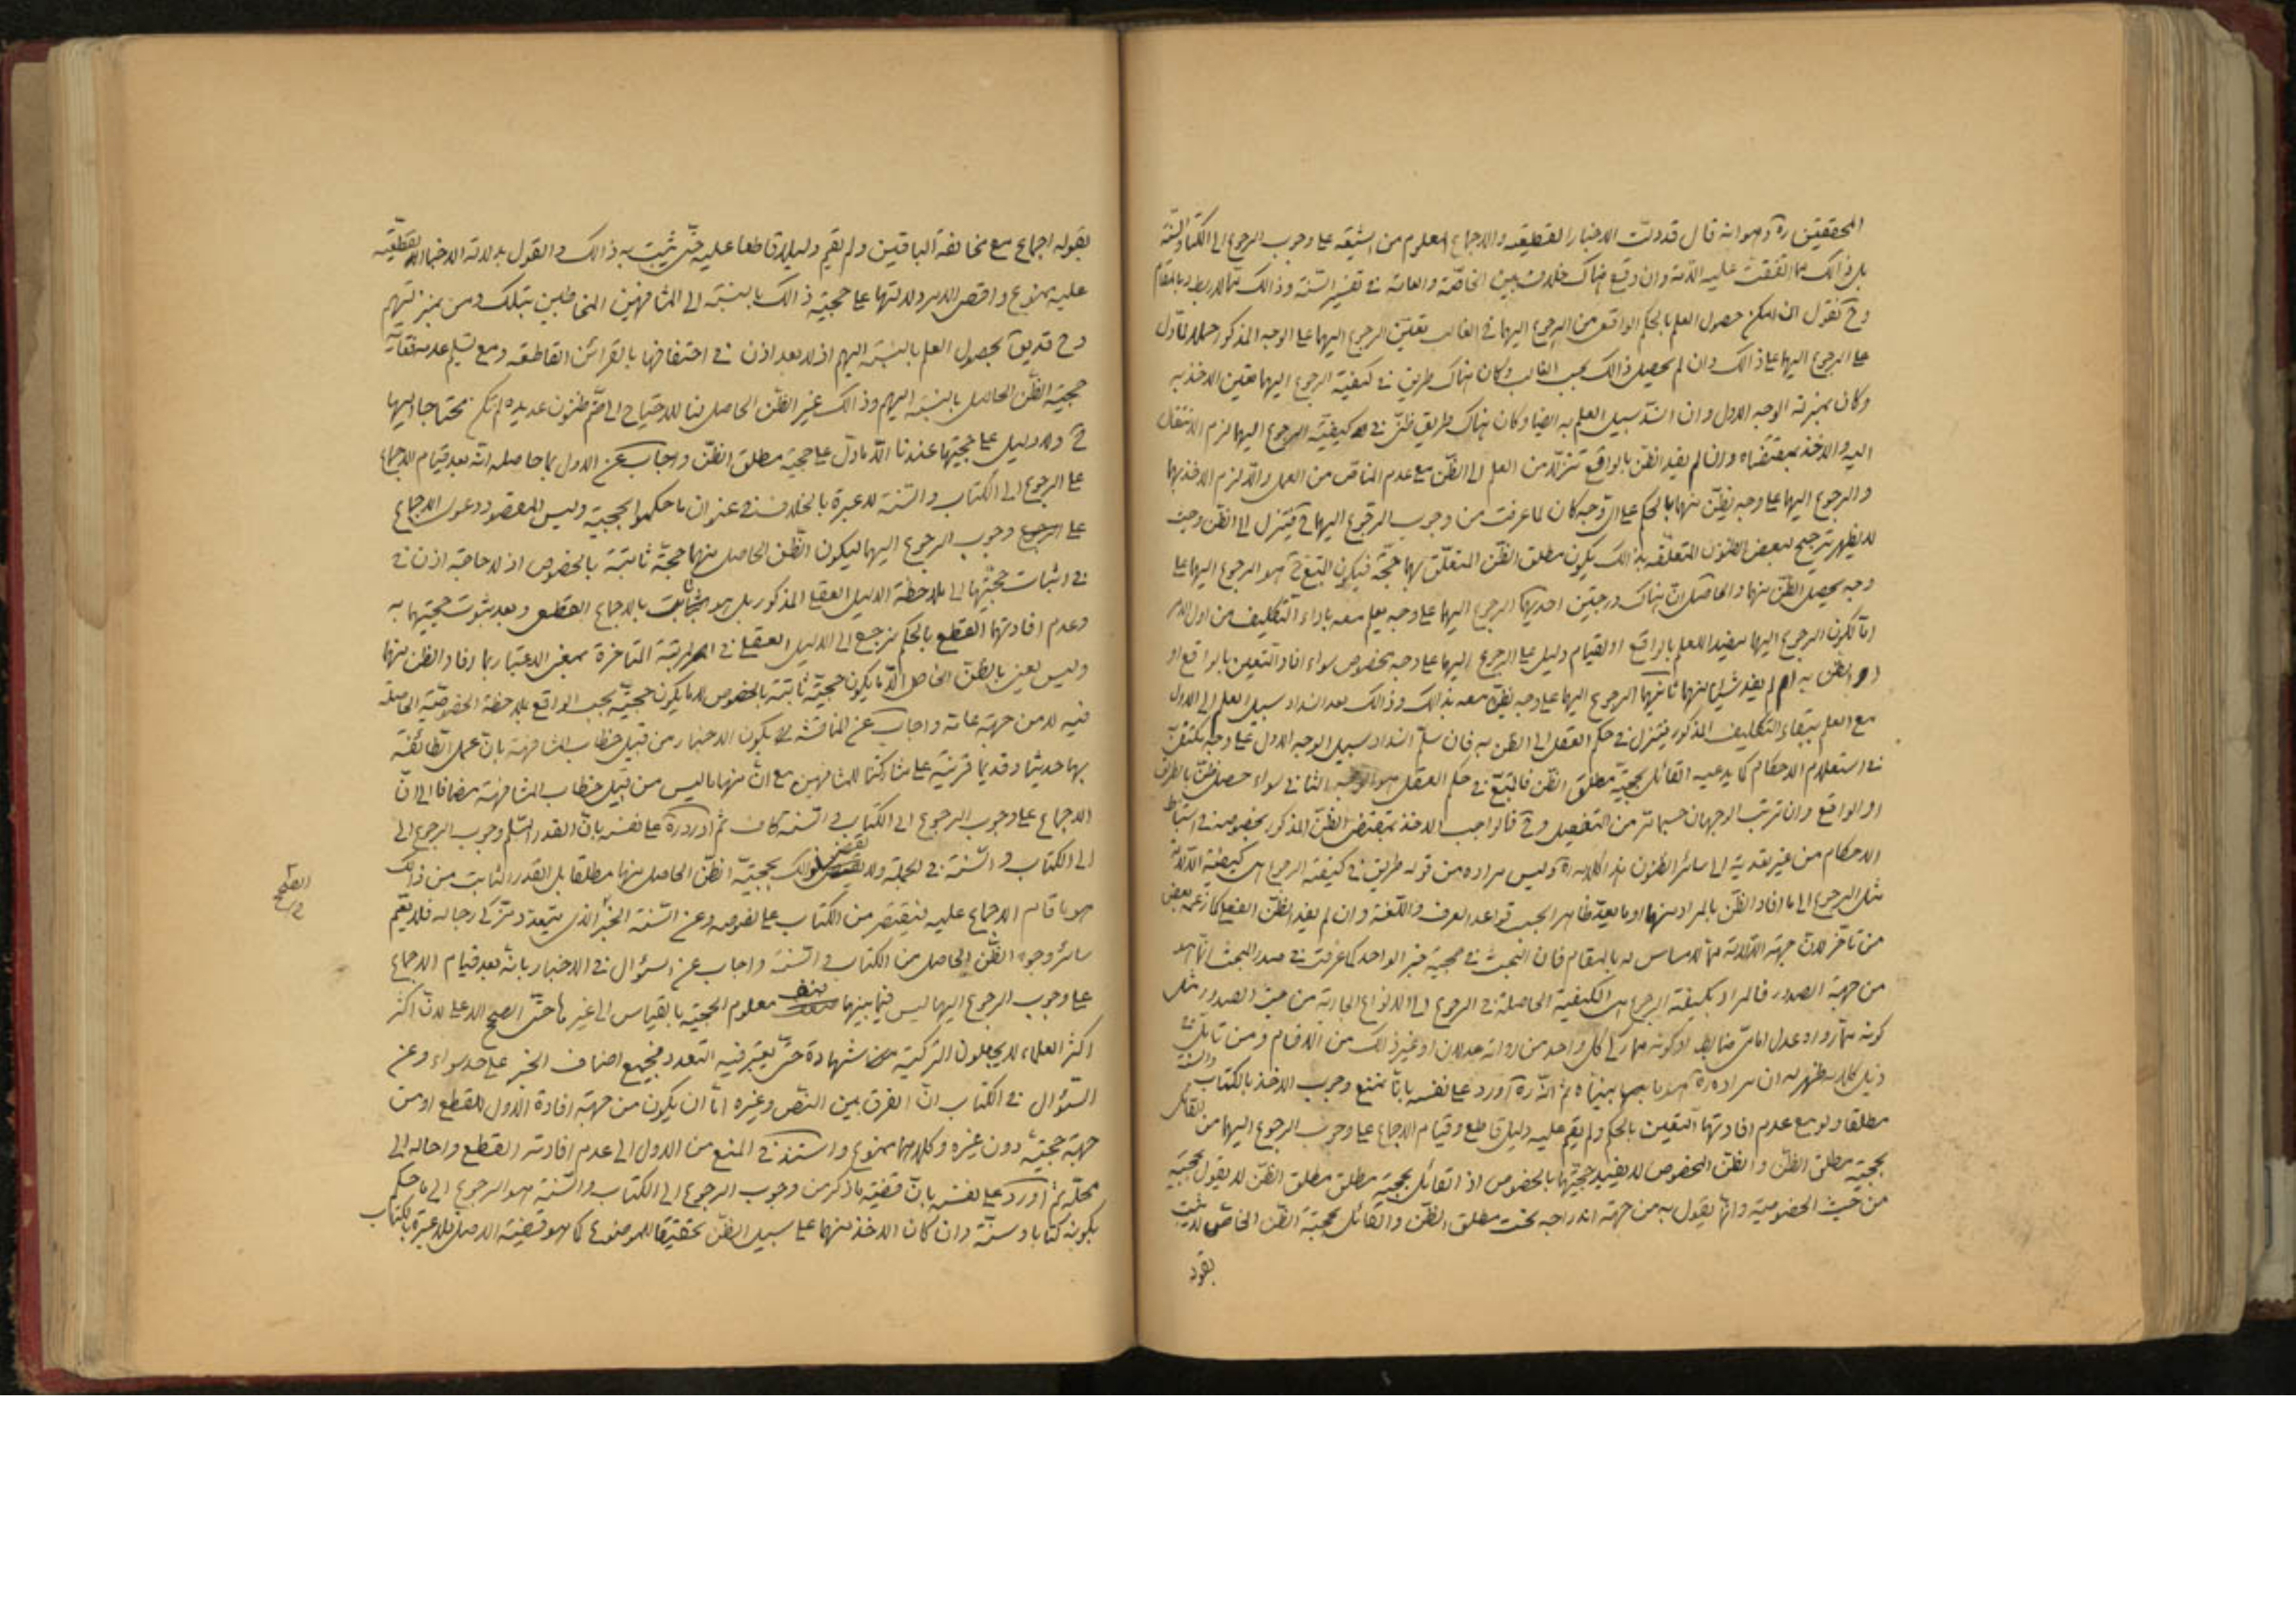 المحققين ره وهو انه قال قد دلت الاخبار القطعيه والاجماع المعلوم من الشيعة على وجوب الرجوع الى الكتاب والسنة
بل ذالك مما اتفقت عليه الامة وان وقع هناك خلاف بين الخاصة والعامة في تفسير السنة وذالك مما لا ربط له بالمقام
وح نقول ان امكن حصول العلم بالحكم الواقعى من الرجوع اليهما في الغالب تعين الرجوع اليهما على الوجه المذكور حملا لما دل
على الرجوع اليهما على ذالك وان لم يحصل ذالك بحسب الغالب وكان هناك طريق في كيفية الرجوع اليهما تعين الاخذ به
وكان بمنزلة الوجه الاول وان انسد سبيل العلم به ايضا وكان هناك طريق ظنى في كيفية الرجوع اليهما لزم الانتقال
اليه والاخذ بمقتضاه وان لم يفد الظن بالواقع تنزلا من العلم الى الظن مع عدم المناص من العمل والا لزم الاخذ بهما
والرجوع اليهما على وجه يظن منهما بالحكم على اى وجه كان لما عرفت من وجوب الرجوع اليهما ح فيتنزل الى الظن وحيث
لا يظهر ترجيح لبعض الظنون المتعلقه بذالك يكون مطلق الظن المتعلق بهما حجة فيكون المتبع ح هو الرجوع اليهما على
وجه يحصل الظن منهما والحاصل ان هناك درجتين احديهما الرجوع اليهما على وجه يعلم معه باداء التكليف من اول الامر
اما لكون الرجوع اليهما مفيدا للعلم بالواقع او لقيام دليل على الرجوع اليهما على وجه مخصوص سواء افاد اليقين بالواقع او
او الظن به ام لم يفد شيئا منهما ثانيهما الرجوع اليهما على وجه يظن معه بذالك وذالك بعد انسداد سبيل العلم الى الاول
مع العلم ببقاء التكليف المذكور فيتنزل في حكم العقل الى الظن به فان سلم انسداد سبيل الوجه الاول على وجه يكتفى
في استعلام الاحكام كما يدعيه القائل بحجية مطلق الظن فالمتبع في حكم العقل هو الوجه الثانى سواء حصل ظن بالطريق
او الواقع وان ترتب الوجهان حسبما مر من التفصيل وح فالواجب الاخذ بمقتضى الظن المذكور بخصوصه في استنباط
الاحكام من غير تعدية الى سائر الظنون هذا كلامه ره وليس مراده من قوله طريق في كيفية الرجوع هى كيفية الدلالة
مثل الرجوع الى ما افاد الظن بالمراد منهما او ما يعد ظاهرا بحسب قواعد العرف واللغة وان لم يفد الظن الفعلى كما زعمه بعض
من تاخر لان جهة الدلالة مما لا مساس له بالمقام فان البحث في حجية خبر الواحد كما عرفت في صدر المبحث انما هو
من جهة الصدور فالمراد بكيفية الرجوع هى الكيفية الحاصلة في الرجوع الى الانواع الجارية من حيث الصدور مثل
كونه مما رواه عدل امامى ضابط او كونه مما زكى كل واحد من رواته عدلان او غير ذالك من الاقسام ومن تامل في
ذيل كلامه ظهر له ان مراده ره هو ما بيناه ثم انه ره اورد على نفسه بانا نمنع وجوب الاخذ بالكتاب والسنة
مطلقا ولو مع عدم افادتهما اليقين بالحكم ولم يقم عليه دليل قاطع وقيام الاجماع على وجوب الرجوع اليهما من القائل
بحجية مطلق الظن والظن المخصوص لا يفيد حجيتها بالخصوص اذ القائل بحجية مطلق مطلق الظن لا يقول بحجية
من حيث الخصوصية وانما يقول به من جهة اندراجه تحت مطلق الظن والقائل بحجية الظن الخاص لا يثبت
بقوله
بقوله اجماع مع مخالفة الباقين ولم يقم دليلا قاطعا عليه حتى يثبت به ذالك والقول بدلالة الاخبار القطعيه
عليه ممنوع واقصى الامر دلالتها على حجية ذالك بالنسبة الى المشافهين المخاطبين بتلك ومن بمنزلتهم
وح قد يق بحصول العلم بالنسبة اليهم اذ لا بعد اذن في احتفافها بالقرائن القاطعه ومع تسليم عدمه فغاية
حجية الظن الحاصل بالنسبة اليهم وذالك غير الظن الحاصل لنا للاحتياج الى ضم ظنون عديدة لم تكن محتاجا اليها
ح ولا دليل على حجيتها عندنا الا ما دل على حجية مطلق الظن واجاب عن الاول بما حاصله انه بعد قيام الاجماع
على الرجوع الى الكتاب والسنة لا عبرة بالخلاف في عنوان ما حكموا بحجيته وليس المقصود دعوى الاجماع
على الرجوع وجوب الرجوع اليهما ليكون الظن الحاصل منهما حجة ثابتة بالخصوص اذ لا حاجة اذن في
في اثبات حجيتها الى ملاحظة الدليل العقلى المذكور بل هو ثابت بالاجماع القطعى وبعد ثبوت حجيتهما به
وعدم افادتهما القطع بالحكم يرجع الى الدليل العقلى في المرتبة المتاخرة بمعنى الاعتبار بما افاد الظن منهما
وليس يعنى بالظن الخاص الا ما يكون حجيته ثابتة بالخصوص لا ما يكون حجيته بحسب الواقع بملاحظة الخصوصية الحاصلة
فيه لا من جهة عامة واجاب عن المناقشه لا يكون الاخبار من قبيل خطاب المشافهة بان عمل الطائفة
بها حديثا وقديما قرينة على مشاركتنا للمشافهين مع ان منها ما ليس من قبيل خطاب المشافهة مضافا الى ان
الاجماع على وجوب الرجوع الى الكتاب والسنة كاف ثم اورد ره على نفسه بان القدر المسلم وجوب الرجوع الى
الى الكتاب والسنة في الجملة ولا يقتضى ذالك بحجية الظن الحاصل منهما مطلقا بل القدر الثابت من ذالك
هو ما قام الاجماع عليه فيقتصر من الكتاب على نصوصه وعن السنة الخبر الذى يتعدد مزكى رجاله فلا يعم
سائر وجوه الظن الحاصل من الكتاب والسنة واجاب عن السؤال في الاخبار بانه بعد قيام الاجماع
على وجوب الرجوع اليهما ليس فيما بينهما صنف معلوم الحجية بالقياس الى غيرها حتى الصح الاعلى لان اكثر
اكثر العلماء لا يجعلون التزكية من شهادة حتى يعتبر فيه التعدد فجميع اصناف الخبر على حد سواء وعن
السؤال في الكتاب ان الفرق بين النص وغيره اما ان يكون من جهة افادة الاول للقطع او من
جهة حجيته دون غيره وكلاهما ممنوع واستند في المنع من الاول الى عدم افادته القطع واحاله الى
محله ثم اورد على نفسه بان قضية ما ذكر من وجوب الرجوع الى الكتاب والسنة هو الرجوع الى ما حكم
بكونه كتابا وسنة وان كان الاخذ منهما على سبيل الظن تحقيقا للموضوع كما هو قضية الاصل فلا عبرة بالكتاب